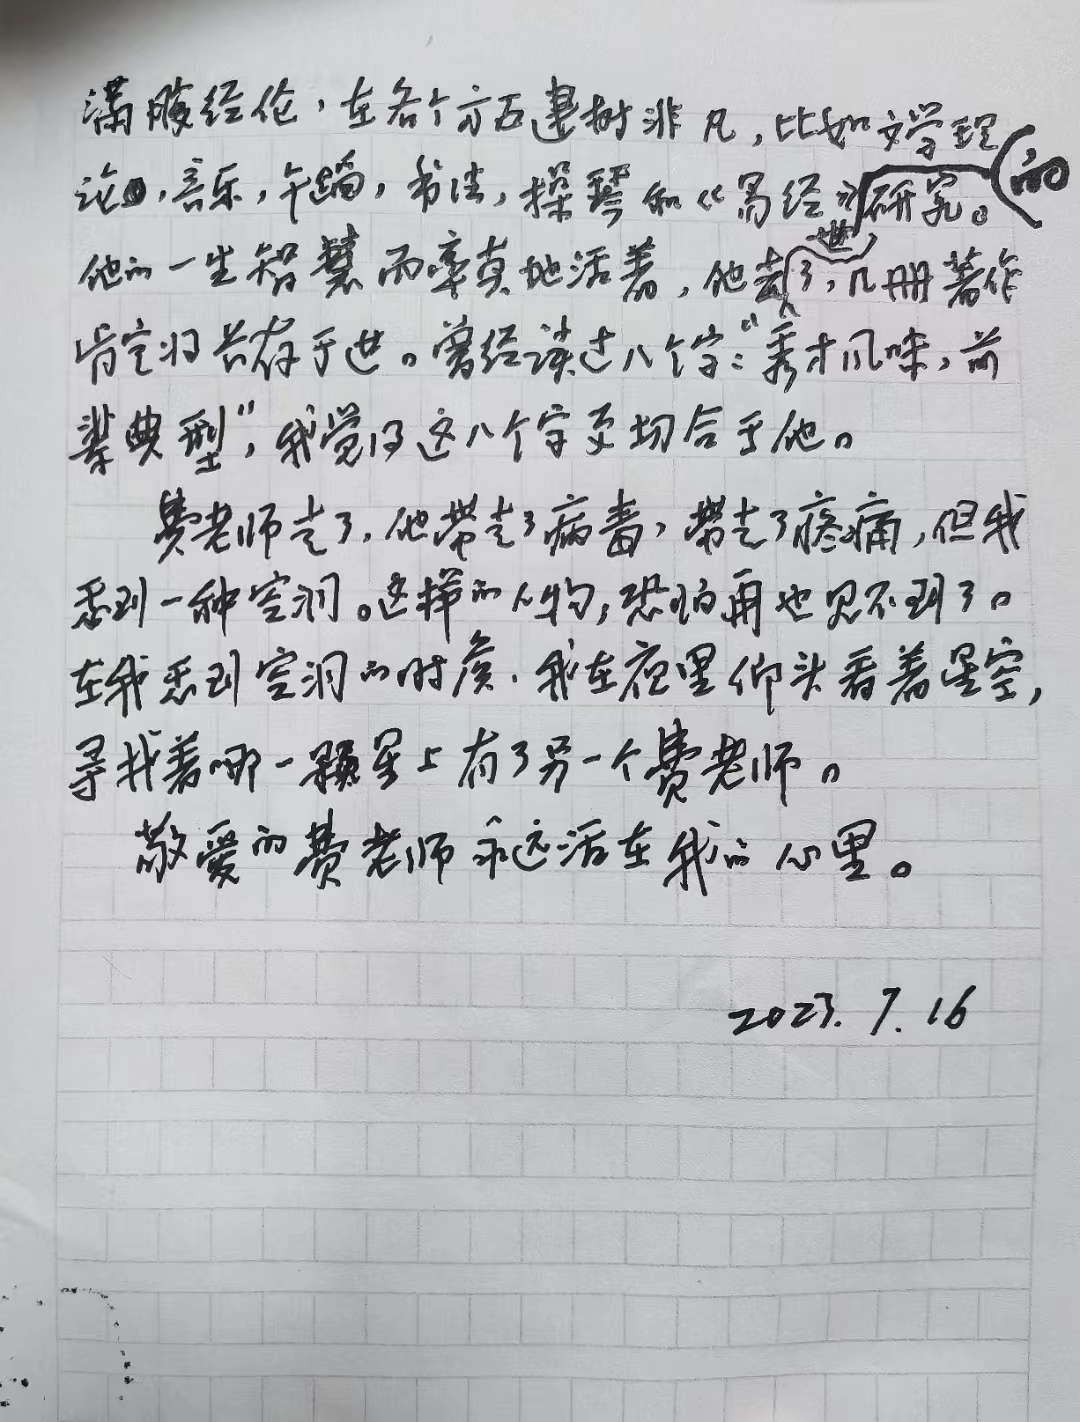 满腹经伦，在各个方面建树非凡，比如文学理
论，音乐，午蹈，书法，操琴和《易经》的研究。
他的一生智慧而率真地活着，他去世了，几册著作
肯定将长存于世。曾经读过八个字：“秀才风味，前
辈典型”，我觉得这八个字更切合于他。
费老师走了，他带走了病毒，带走了疼痛，但我
感到一种空洞。这样的人物，恐怕再也见不到了。
在我感到空洞的时候，我在夜里仰头看着星空，
寻找着哪一颗星上有了另一个费老师。
敬爱的费老师永远活在我的心里。
2023.7.16